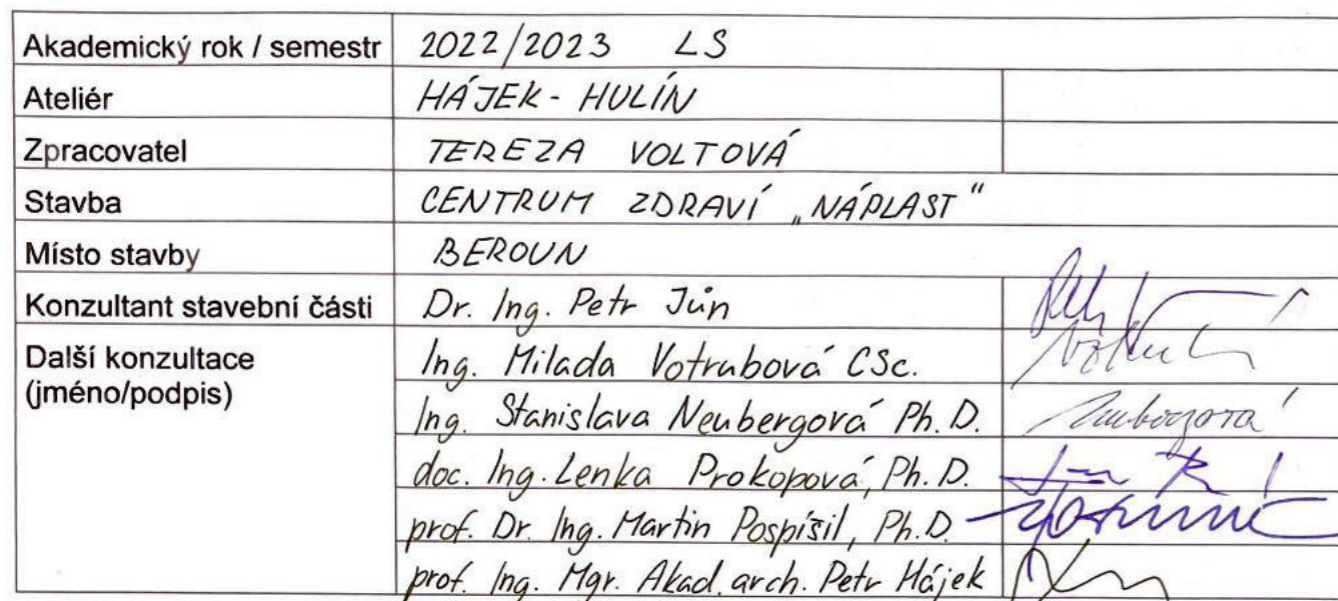 Akademický rok / semestr 2022/2023 LS
Ateliér HÁJEK - HULÍN
Zpracovatel TEREZA VOLTOVÁ
Stavba CENTRUM ZDRAVÍ „NÁPLAST"
Místo stavby BEROUN
Konzultant stavební části Dr. Ing. Petr Jůn
Další konzultace Ing. Milada Votrubová CSc.
(jméno/podpis)
Ing. Stanislava Neubergová Ph.D.
doc. Ing. Lenka Prokopová, Ph.D.
prof. Dr. Ing. Martin Pospíšil, Ph.D.
prof. Ing. Mgr. Akad. arch. Petr Hájek